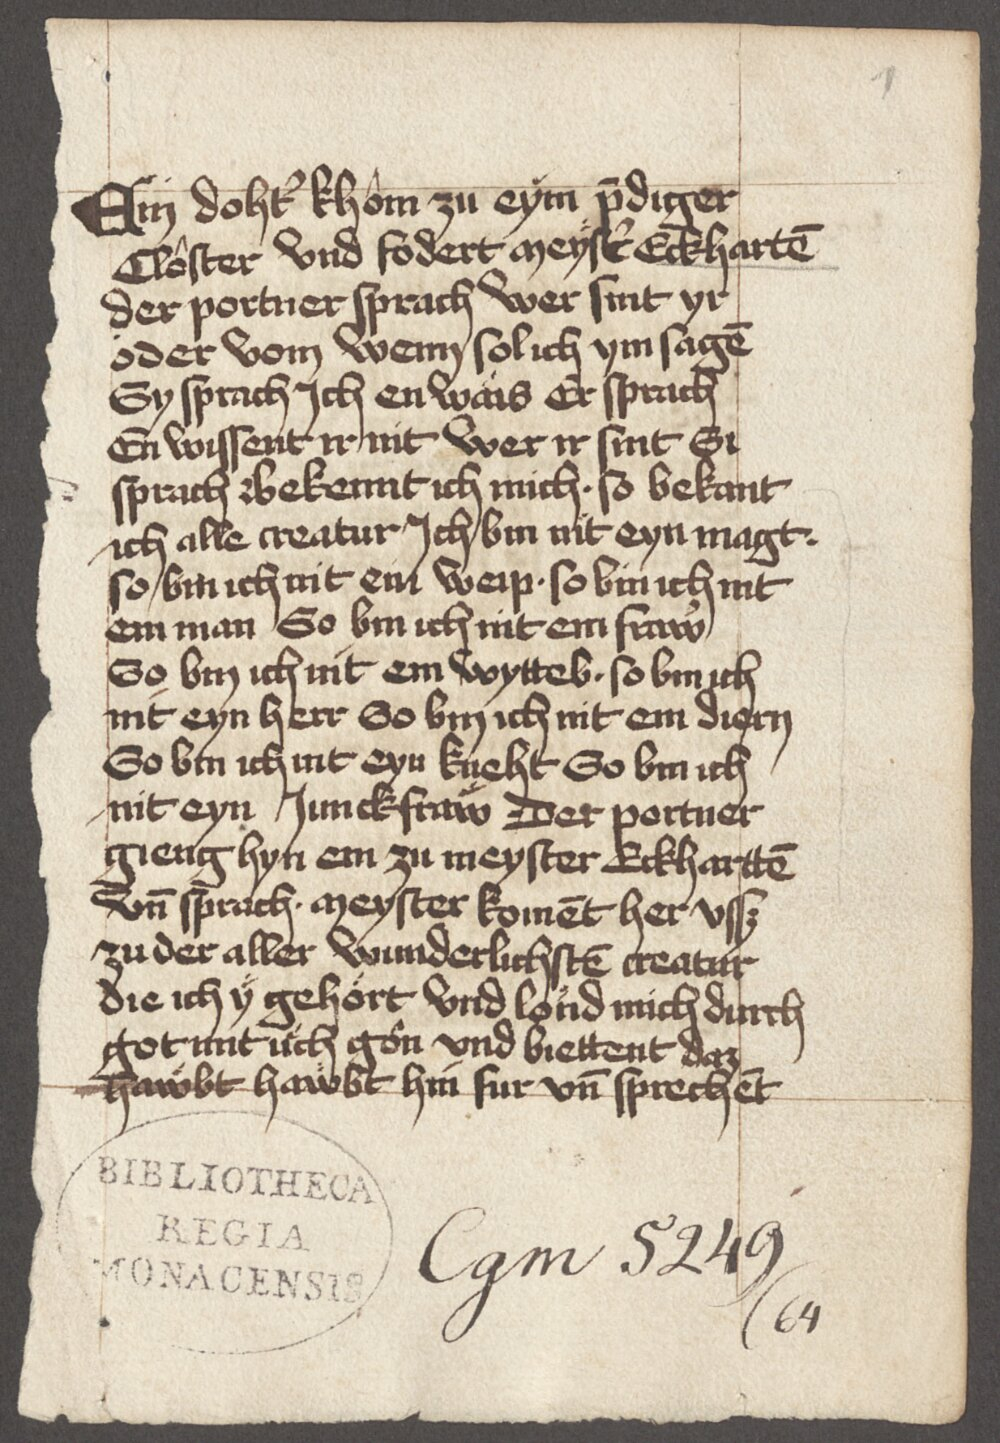 1
Ein doht᷑ khôm zu eÿm p̄diger
Clôster Vnd fodert meÿst᷑ Eckhartē
der portner sprach Wer sint yr
oder Vom wemͥ sol ich ym sagē
Sy sprach Ich en wais Er sprach
En wissent ir nit Wer ir sint Si
sprach Bekennt ich mich · so bekant
ich alle creatur Ich bin nit eyn magt ·
so bin ich nit ein weip · so bin ich nit
ein man So bin ich nit ein fraw
So bin ich nit ein wytteb · so bin ich
nit eyn herr So bin ich nit ein diern
So bin ich nit eyn kneht So bin ich
nit eyn Junckfraw Der portner
gieng hyn ein zu meyster Eckharttē
Vn̄ sprach · meyster komēt her vsz
zu der aller wunderlichstē creatur
die ich ÿ gehört Vnd lond mich durch
got mit üch gôn vnd biettent daz
hawbt hawbt hin fur vn̄ sprechēt
BIBLIOTHECA
REGIA
MONACENSIS
Cgm 5249
(64